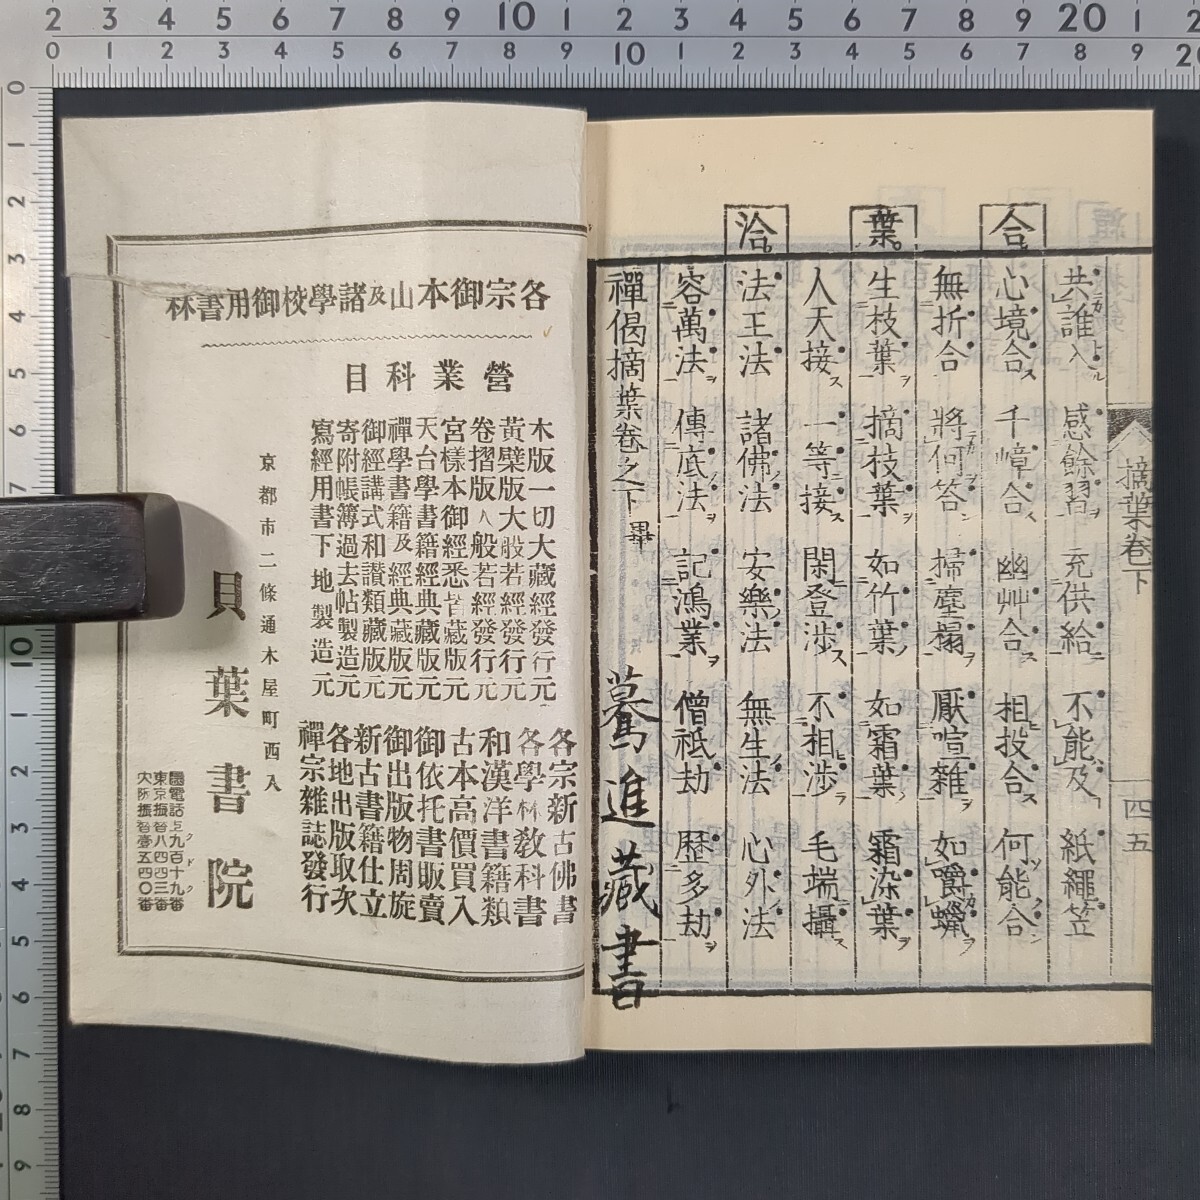 合
葉
洽
共誰入 感餘習 充供給 不能及 紙繩笠
心境合 千嶂合 幽艸合 相投合 何能合
無折合 將何答 掃塵榻 厭喧雜 如嚼蠟
生枝葉 摘枝葉 如竹葉 如霜葉 霜染葉
人天接 一等接 閑登渉 不相渉 毛端攝
法王法 諸佛法 安樂法 無生法 心外法
容萬法 傳底法 記鴻業 僧祇劫 歴多劫
禪偈摘葉卷之下 畢
驀進藏書
摘葉卷下
四五
各宗御本山及諸學校御用書林
營業科目
木版一切大藏經發行元
黃檗版大般若經發行元
卷摺版大般若經發行元
宮樣本御經悉皆藏版
天台學書籍經典藏版元
禪學書籍及經典藏版元
御經講式和讃類藏版元
寄附帳簿過去帖製造元
寫經用書下地製造元
各宗新古佛書
各學林教科書
和漢洋書籍類
古本高價買入
御依托書販賣
御出版物周旋
新古書籍仕立
各地出版取次
禪宗雜誌發行
京都市二條通木屋町西入
貝葉書院
電話上九百十九番
クドク
東京振替八四三番
大阪振替壹五四〇番